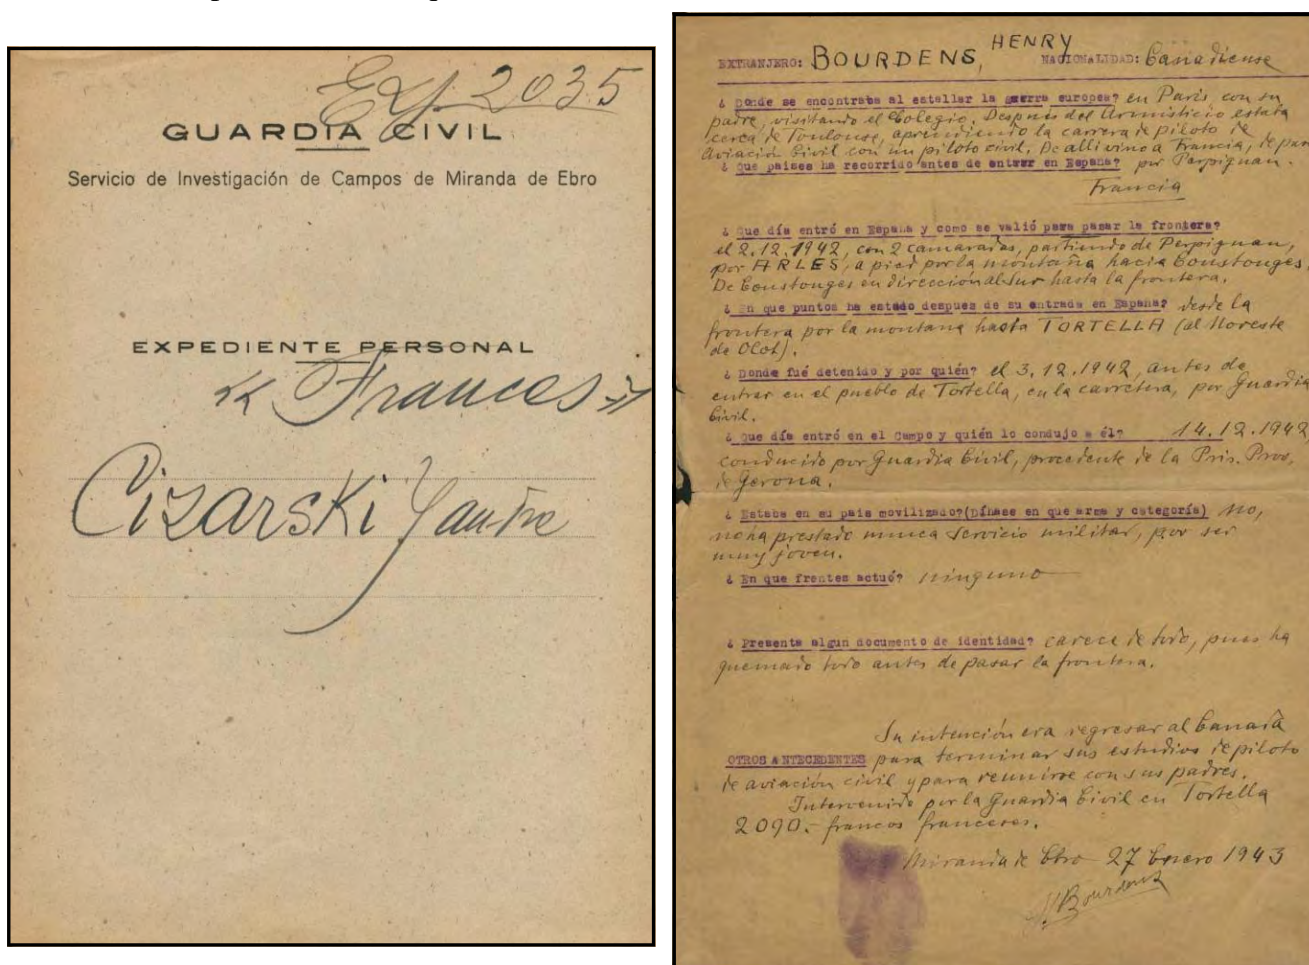 Ex. 2035
GUARDIA CIVIL
Servicio de Investigación de Campos de Miranda de Ebro
EXPEDIENTE PERSONAL
« Frances »
Cizarski
EXTRANJERO: BOURDENS, HENRY NACIONALIDAD: Canadiense
¿ Donde se encontraba al estallar la guerra europea? en Paris con su
padre, visitando el Colegio. Despues del Armisticio estaba
cerca de Toulouse, aprendiendo la carrera de piloto de
Aviación Civil con un piloto civil. De alli vino a Francia,
¿ Que paises ha recorrido antes de entrar en España? por Perpignan.
Francia
¿ Que día entró en España y como se valió para pasar la frontera?
el 2.12.1942, con 2 camaradas, partiendo de Perpignan,
por ARLES, a pied por la montaña hacia Coustouges.
De Coustouges en dirección al Sur hasta la frontera.
¿ En que puntos ha estado despues de su entrada en España? desde la
frontera por la montana hasta TORTELLA (al Noreste
de Olot).
¿ Donde fué detenido y por quién? el 3.12.1942, antes de
entrar en el pueblo de Tortella, en la carretera, por Guardia
Civil.
¿ Que día entró en el Campo y quién lo condujo a él? 14.12.1942
conducido por Guardia Civil, procedente de la Pris. Prov.
de Gerona.
¿ Estaba en su pais movilizado?(Díhase en que arma y categoría) No,
no ha prestado nunca Servicio militar, por ser
muy joven.
¿ En que frentes actuó? ninguno
¿ Presenta algun documento de identidad? carece de todo, pues ha
quemado todo antes de pasar la frontera.
Su intención era regresar al Canadá
OTROS ANTECEDENTES para terminar sus estudios de piloto
de aviación civil y para reunirse con sus padres.
Intervenido por la Guardia Civil en Tortella
2090.- francos franceses.
Miranda de Ebro 27 Enero 1943
H. Bourdens